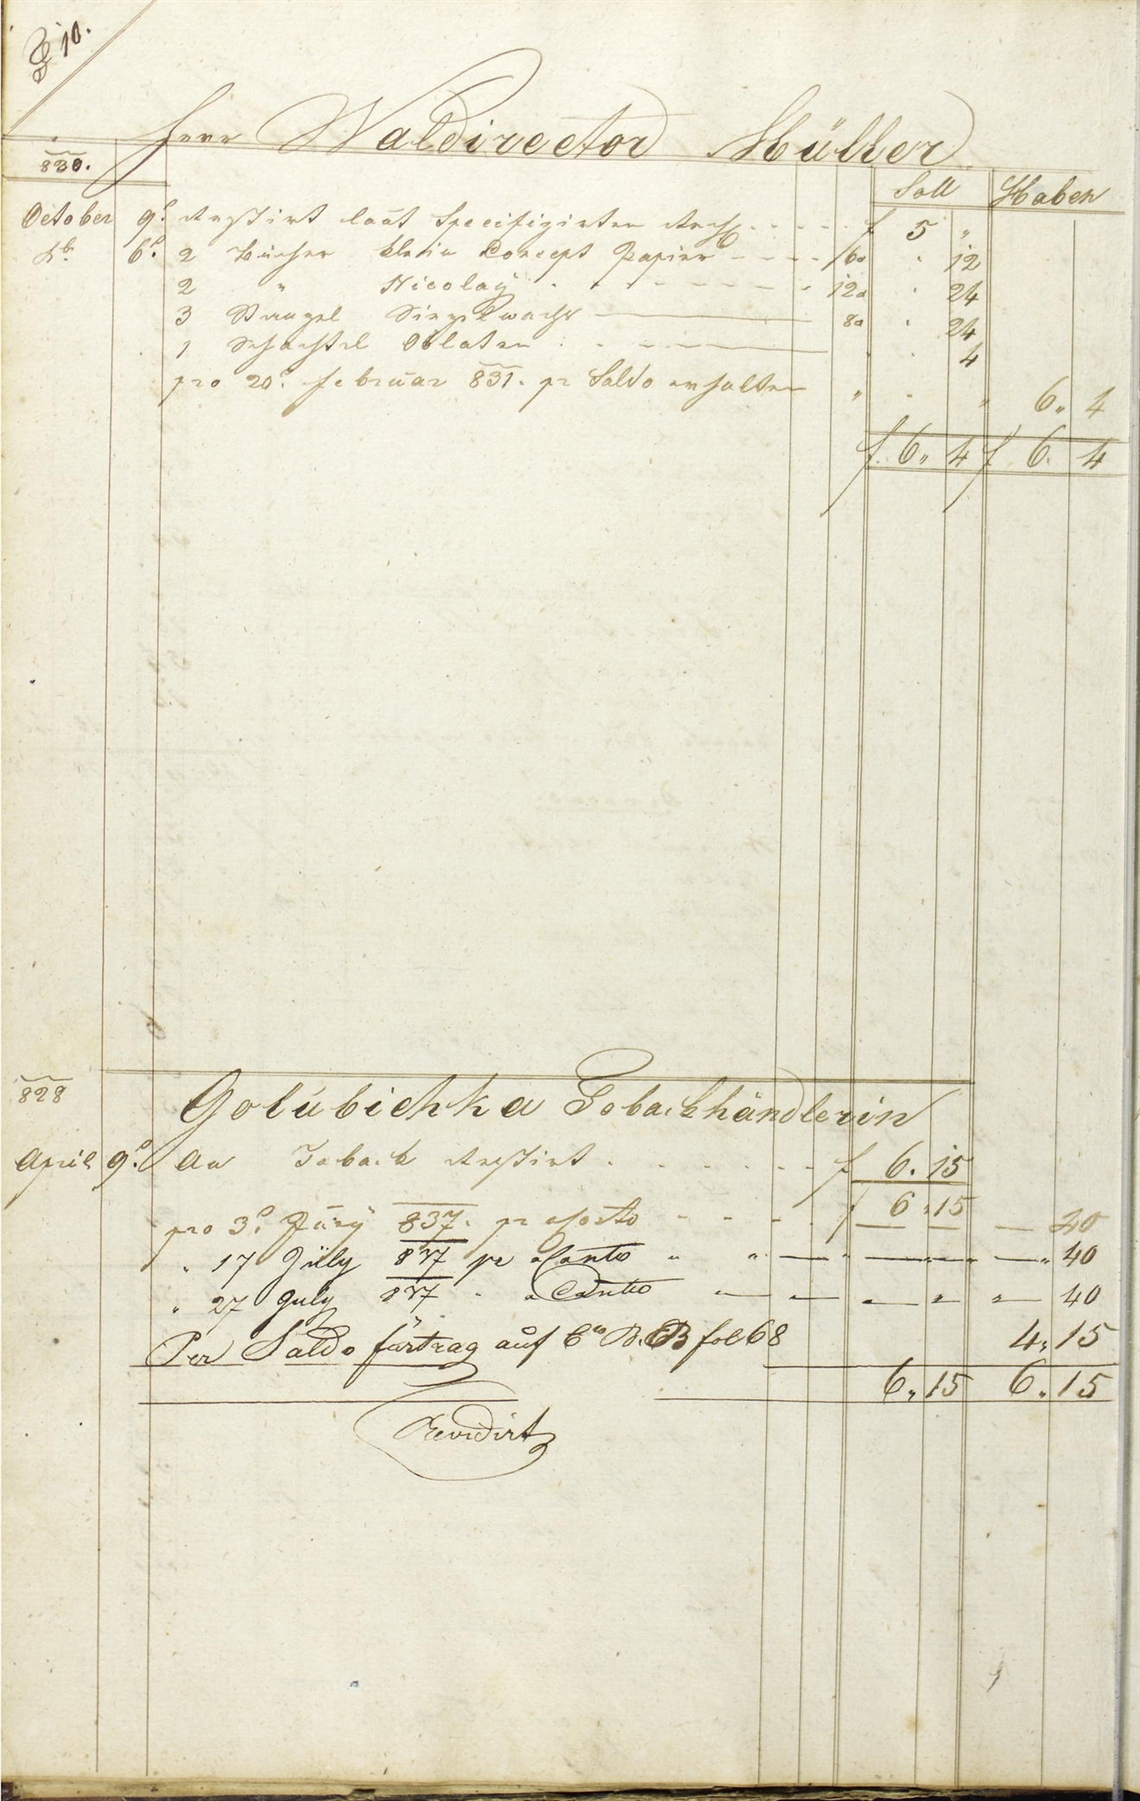 10.
Herr Waldirector Müller
830.
Soll Haben
October 9. Restirt laut Specifizirter Rech f 5 "
6. 2 Bücher klein Concept Papier 6 " 12
2 " Nicolay 12 " 24
3 Stangel Siegelwachs 8 " 24
1 Schachtel Oblaten " 4
pro 20. Februar 831. pr Saldo erhalten " " " 6 " 4
f 6 " 4 f 6 4
828
Golubichka Tobackhändlerin
April 9. An Toback Restirt f 6. 15
f 6 " 15
pro 3. Juny 837. pr Conto 20
" 17 July 837 pr Conto " " 40
" 27 July 837 " " Conto 40
Per Saldo fürtrag auf B. B fol 68 4 " 15
6 " 15 6 " 15
Revidirt